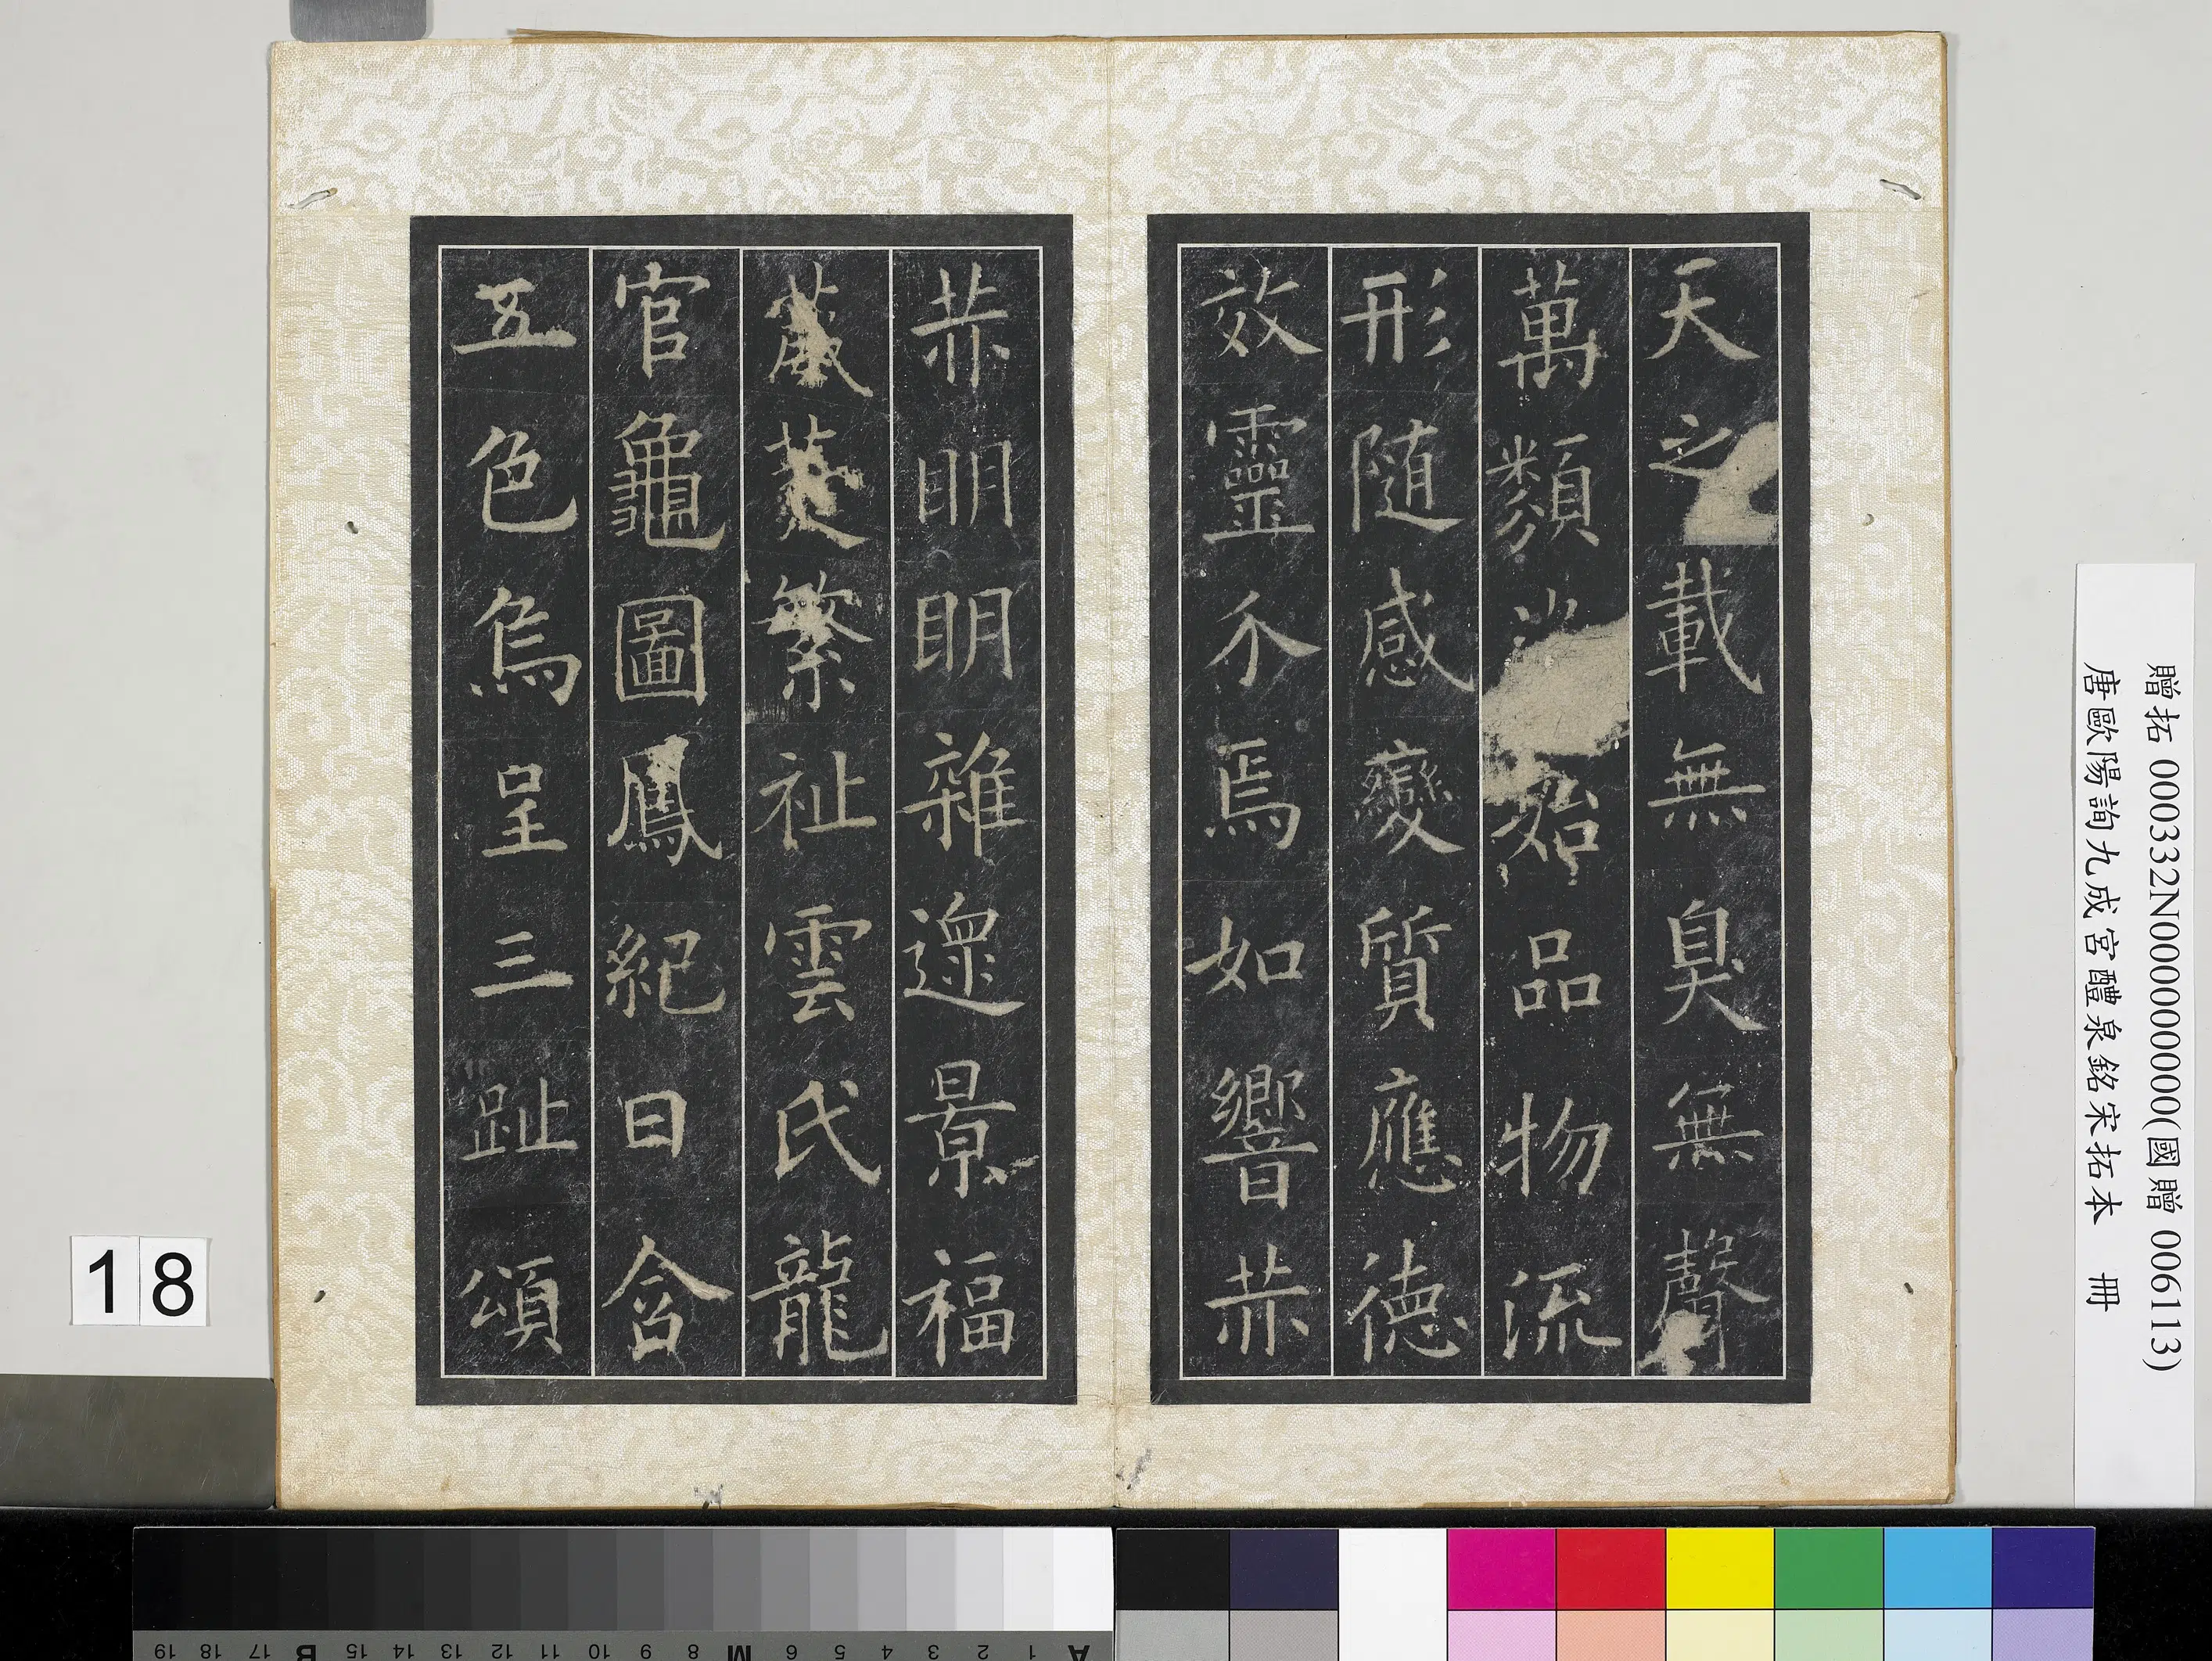 天之載無臭無聲
萬類始品物流
形隨感變質應德
效靈介焉如響赫
赫明明雜遝景福
葳蕤繁祉雲氏龍
官龜圖鳳紀日含
五色烏呈三趾頌
贈拓 000332N000000000(國贈 006113)
唐歐陽詢九成宮醴泉銘宋拓本 冊
18
19 18 17 B 15 14 13 12 11 10 9 8 M 6 5 4 3 2 1 A